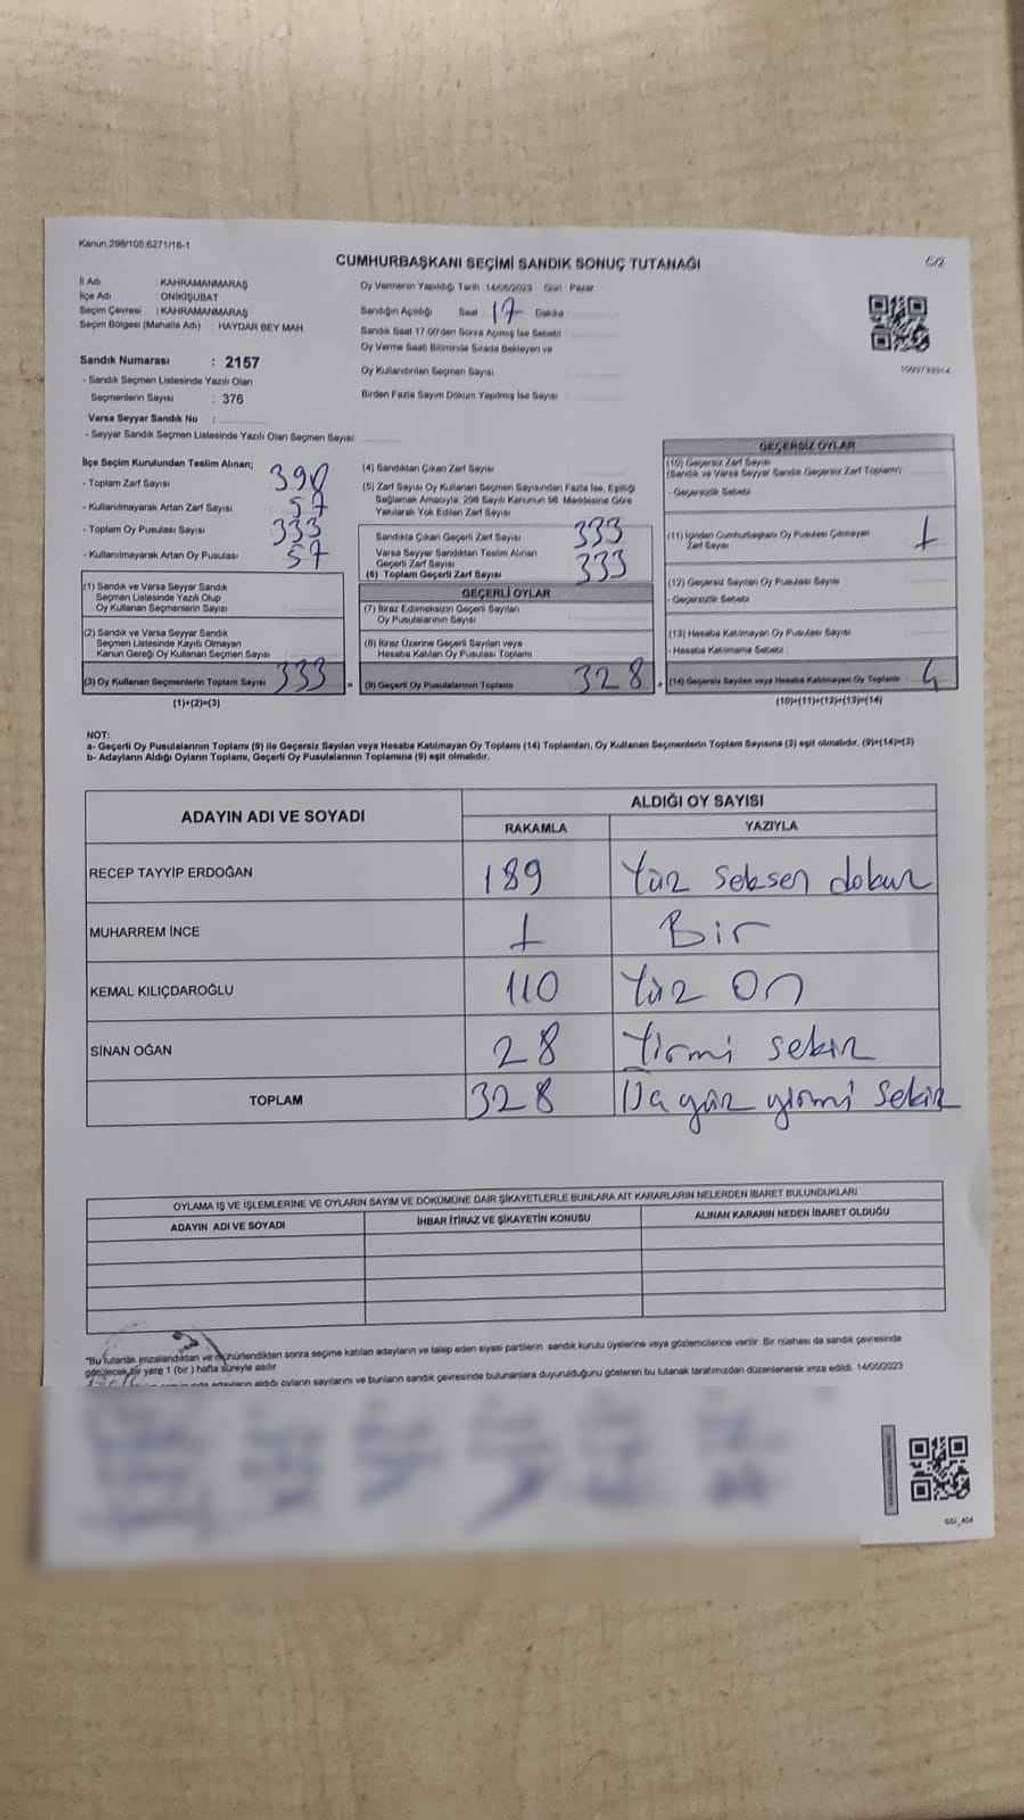 Kanun 298/105;6271/16-1
CUMHURBAŞKANI SEÇİMİ SANDIK SONUÇ TUTANAĞI
C/2
İl Adı : KAHRAMANMARAŞ
İlçe Adı : ONİKİŞUBAT
Seçim Çevresi : KAHRAMANMARAŞ
Seçim Bölgesi (Mahalle Adı) : HAYDAR BEY MAH.
Oy Vermenin Yapıldığı Tarih 14/05/2023 Gün Pazar
Sandığın Açıldığı Saat 17 Dakika
Sandık Saat 17.00'den Sonra Açılmış İse Sebebi
Oy Verme Saati Bitiminde Sırada Bekleyen ve
Oy Kullandırılan Seçmen Sayısı
Birden Fazla Sayım Döküm Yapılmış İse Sayısı
Sandık Numarası : 2157
- Sandık Seçmen Listesinde Yazılı Olan
Seçmenlerin Sayısı : 376
Varsa Seyyar Sandık No :
- Seyyar Sandık Seçmen Listesinde Yazılı Olan Seçmen Sayısı
İlçe Seçim Kurulundan Teslim Alınan;
- Toplam Zarf Sayısı 390
- Kullanılmayarak Artan Zarf Sayısı 57
- Toplam Oy Pusulası Sayısı 333
- Kullanılmayarak Artan Oy Pusulası 57
(1) Sandık ve Varsa Seyyar Sandık
Seçmen Listesinde Yazılı Olup
Oy Kullanan Seçmenlerin Sayısı
(2) Sandık ve Varsa Seyyar Sandık
Seçmen Listesinde Kayıtlı Olmayan
Kanun Gereği Oy Kullanan Seçmen Sayısı
(3) Oy Kullanan Seçmenlerin Toplam Sayısı 333
(1)+(2)=(3)
(4) Sandıktan Çıkan Zarf Sayısı
(5) Zarf Sayısı Oy Kullanan Seçmen Sayısından Fazla İse, Eşitliği
Sağlamak Amacıyla, 298 Sayılı Kanunun 98. Maddesine Göre
Yakılarak Yok Edilen Zarf Sayısı
Sandıkta Çıkan Geçerli Zarf Sayısı 333
Varsa Seyyar Sandıktan Teslim Alınan
Geçerli Zarf Sayısı
(6) Toplam Geçerli Zarf Sayısı 333
GEÇERLİ OYLAR
(7) İtiraz Edilmeksizin Geçerli Sayılan
Oy Pusulalarının Sayısı
(8) İtiraz Üzerine Geçerli Sayılan veya
Hesaba Katılan Oy Pusulası Toplamı
(9) Geçerli Oy Pusulalarının Toplamı 328
GEÇERSİZ OYLAR
(10) Geçersiz Zarf Sayısı
(Sandık ve Varsa Seyyar Sandık Geçersiz Zarf Toplamı)
- Geçersizlik Sebebi
(11) İçinden Cumhurbaşkanı Oy Pusulası Çıkmayan
Zarf Sayısı 1
(12) Geçersiz Sayılan Oy Pusulası Sayısı
- Geçersizlik Sebebi
(13) Hesaba Katılmayan Oy Pusulası Sayısı
- Hesaba Katılmama Sebebi
(14) Geçersiz Sayılan veya Hesaba Katılmayan Oy Toplamı 4
(10)+(11)+(12)+(13)=(14)
NOT:
a- Geçerli Oy Pusulalarının Toplamı (9) ile Geçersiz Sayılan veya Hesaba Katılmayan Oy Toplamı (14) Toplamları, Oy Kullanan Seçmenlerin Toplam Sayısına (3) eşit olmalıdır. (9)+(14)=(3)
b- Adayların Aldığı Oyların Toplamı, Geçerli Oy Pusulalarının Toplamına (9) eşit olmalıdır.
ADAYIN ADI VE SOYADI
ALDIĞI OY SAYISI
RAKAMLA YAZIYLA
RECEP TAYYİP ERDOĞAN 189 Yüz seksen dokuz
MUHARREM İNCE 1 Bir
KEMAL KILIÇDAROĞLU 110 Yüz On
SİNAN OĞAN 28 Yirmi sekiz
TOPLAM 328 Üç yüz yirmi sekiz
OYLAMA İŞ VE İŞLEMLERİNE VE OYLARIN SAYIM VE DÖKÜMÜNE DAİR ŞİKAYETLERLE BUNLARA AİT KARARLARIN NELERDEN İBARET BULUNDUKLARI
ADAYIN ADI VE SOYADI İHBAR İTİRAZ VE ŞİKAYETİN KONUSU ALINAN KARARIN NEDEN İBARET OLDUĞU
*Bu tutanak imzalandıktan ve mühürlendikten sonra seçime katılan adayların ve talep eden siyasi partilerin sandık kurulu üyelerine veya gözlemcilerine verilir. Bir nüshası da sandık çevresinde
görülecek bir yere 1 (bir) hafta süreyle asılır.
adayların aldığı oyların sayılarını ve bunların sandık çevresinde bulunanlara duyurulduğunu gösteren bu tutanak tarafımızdan düzenlenerek imza edildi. 14/05/2023